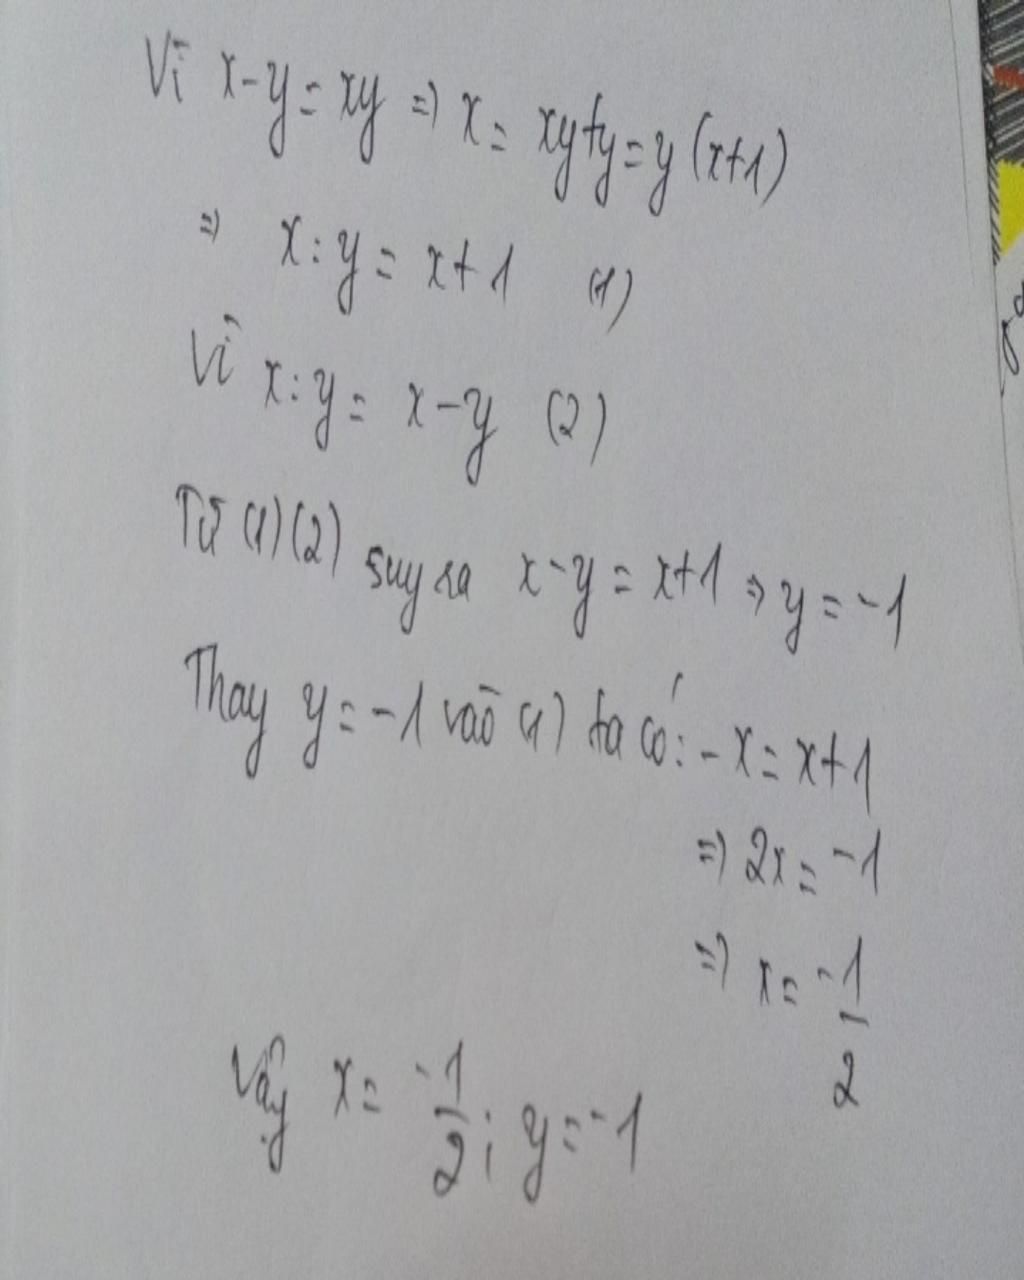 Vì x-y = xy => x = xy+y = y(x+1)
=> x:y = x+1 (1)
Vì x:y = x-y (2)
Từ (1)(2) suy ra x-y = x+1 => y = -1
Thay y = -1 vào (1) ta có: -x = x+1
=> 2x = -1
=> x = -1/2
Vậy x = -1/2; y = -1